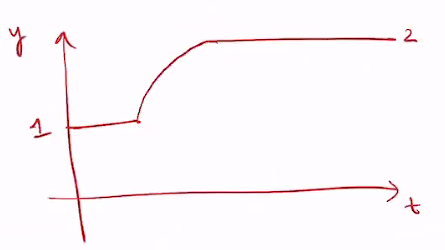 y
2
1
t